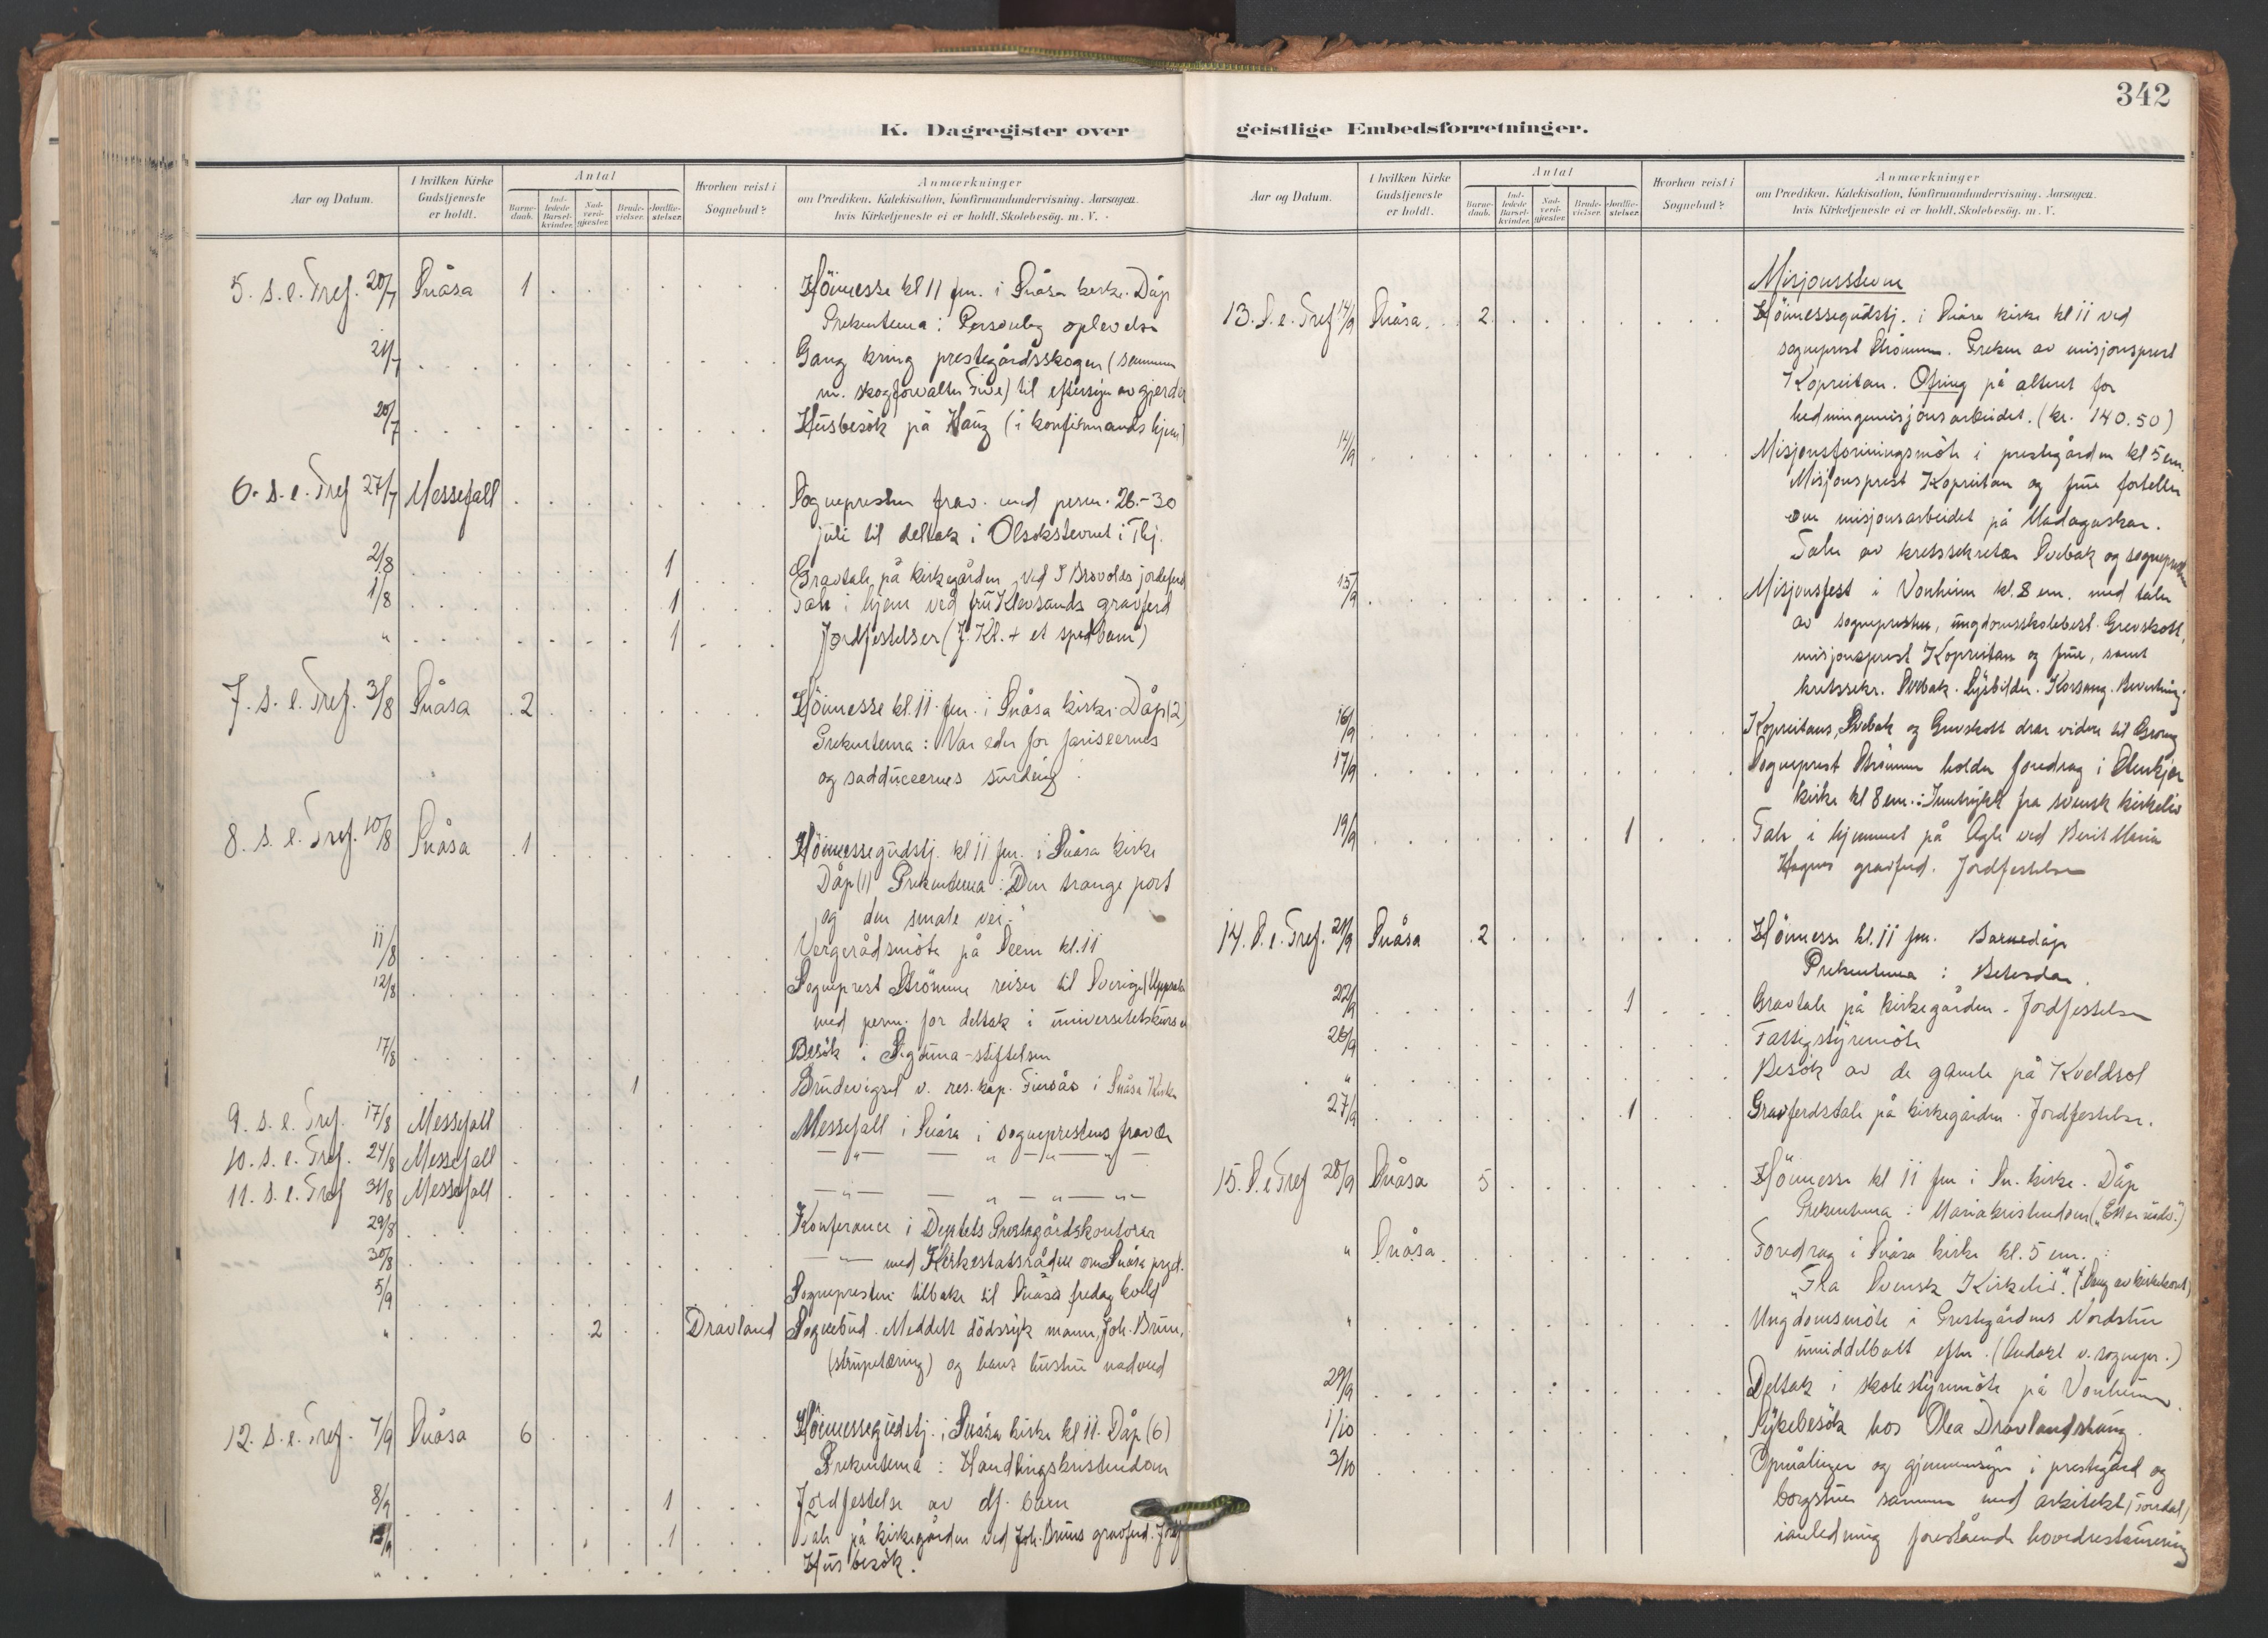 342
K. Dagregister over geistlige Embedsforretninger.
Aar og Datum.
I hvilken Kirke Gudstjeneste er holdt.
Antal
Barne-daab.
Ind-ledede Barsel-kvinder.
Nad-verd-gjæster.
Brude-vielser.
Jordfæ-stelser.
Hvorhen reist i Sognebud?
Anmærkninger
om Prædiken, Katekisation, Konfirmandundervisning, Aarsagen,
hvis Kirketjeneste ei er holdt, Skolebesøg, m. V.
5. s. e. Tref. 20/7 Snåsa 1 Höimesse kl 11 fm. i Snåsa kirke. Dåp
Prekentema: Personlig oplevelse
21/7 Gang kring prestegårdsskogen (sammen
m. skogforvalter Five) til eftersyn av gjerder
20/7 Husbesök på Haug (i konfirmands hjem)
6. s. e. Tref 27/7 Messefall Sognepresten frav. med perm. 26.-30
juli til deltak i Olsokstevnet i Thj.
2/8 1 Gravtale på kirkegården ved jordeferd
1/8 1 Tale i hjem ved fru Klevsands gravferd
" 1 Jordfestelser (J. Kl. + et spedbarn)
7. s. e. Tref. 3/8 Snåsa 2 Höimesse kl. 11 fm. i Snåsa kirke. Dåp (2)
Prekentema: Var eder for fariseernes
og sadduceernes surdeig
8. s. e. Tref. 10/8 Snåsa 1 Höimessegudstj. kl 11 fm. i Snåsa kirke
Dåp (1) Prekentema: Den trange port
og den smale vei."
11/8 Vergerådsmöte på Seem kl. 11
12/8 Sogneprest Strömme reiser til Sverige (Uppsala
med perm. for deltak i universitetskurs
17/8 Besök i Sigtuna-stiftelsen
1 Brudevigsel v. res. kap. i Snåsa Kirke
9. s. e. Tref. 17/8 Messefall Messefall i Snåsa i sogneprestens fravær
10. s. e. Tref. 24/8 Messefall — " — — " — " — " —
11. s. e. Tref 31/8 Messefall — " — — " — " — " —
29/8 Konferanse i Deptets Prestegårdskontorer
30/8 — " — med Kirkestatsråden om Snåsa prgd.
5/9 Sognepresten tilbake til Snåsa fredag kveld
" 2 Dravland Sognebud. Meddelt dödssyk mann, Joh. Bruu,
(strupetæring) og hans hustru nadverd
12. s. e. Tref. 7/9 Snåsa 6 Höimessegudstj. i Snåsa kirke kl 11. Dåp (6)
Prekentema: Handlingskristendom
8/9 1 Jordfestelse av df. barn
/9 1 Tale på kirkegården ved Joh. Bruus gravferd. Jordf
" Husbesök.
Aar og Datum.
I hvilken Kirke Gudstjeneste er holdt.
Antal
Barne-daab.
Ind-ledede Barsel-kvinder.
Nad-verd-gjæster.
Brude-vielser.
Jordfæ-stelser.
Hvorhen reist i Sognebud?
Anmærkninger
om Prædiken, Katekisation, Konfirmandundervisning, Aarsagen,
hvis Kirketjeneste ei er holdt, Skolebesøg, m. V.
Misjonsstevne
13. S. e. Tref 14/9 Snåsa. 2 Höimessegudstj. i Snåsa kirke kl 11 ved
sogneprest Strömme. Preken av misjonsprest
Kopreitan. Ofring på alteret for
hedningemisjonsarbeidet. (kr. 140.50)
14/9 Misjonsforeningsmöte i prestegården kl 5 em.
Misjonsprest Kopreitan og frue forteller
om misjonsarbeidet på Madagaskar.
Taler av kretssekretær Svebak og sognepresten
15/9 Misjonsfest i Vonheim kl. 8 em. med taler
av sognepresten, ungdomsskolebest. Grevskott,
misjonsprest Kopreitan og frue, samt
kretssekr. Svebak. Lysbilder. Korsang. Bevertning.
16/9 Kopreitans, Svebak og Grevskott drar videre til Grong
17/9 Sogneprest Strömme holder foredrag i Stenkjær
kirke kl 8 em.: Inntrykk fra svensk kirkeliv
19/9 1 Tale i hjemmet på Agle ved Berit Maria
Hagens gravferd. Jordfestelse
14. S. e. Tref. 21/9 Snåsa 2 Höimesse kl. 11 fm. Barnedåp
Prekentema: Betesda.
22/9 1 Gravtale på kirkegården. Jordfestelse
26/9 Fattigstyremöte
" Besök av de gamle på Kveldsol
27/9 1 Gravferdstale på kirkegården. Jordfestelse.
15. S. e Tref 28/9 Snåsa 5 Höimesse kl 11 fm i Sn. kirke. Dåp
Prekentema: Mariakristendom ("Ett er nödv.")
" Snåsa. Foredrag i Snåsa kirke kl. 5 em.:
"Fra Svensk Kirkeliv". (Sang av kirkekoret)
" Ungdomsmöte i Prestegårdens Nordstue
umiddelbart efter. (Andakt v. sognepr.)
29/9 Deltak i skolestyremöte på Vonheim
1/10 Sykebesök hos Olea Dravlandshaug.
3/10 Opmålinger og gjennemsyn i prestegård og
borgstue sammen med arkitekt Tverdal,
i anledning forestående hovedrestaurering